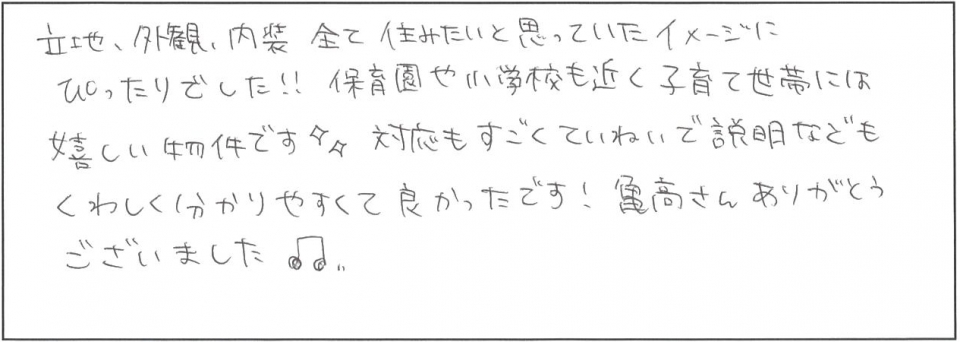 立地、外観、内装 全て 住みたいと思っていたイメージに
ぴったりでした!! 保育園や小学校も近く子育て世帯には
嬉しい物件です☆☆ 対応もすごくていねいで説明なども
くわしく分かりやすくて良かったです! 亀高さんありがとう
ございました ♫..